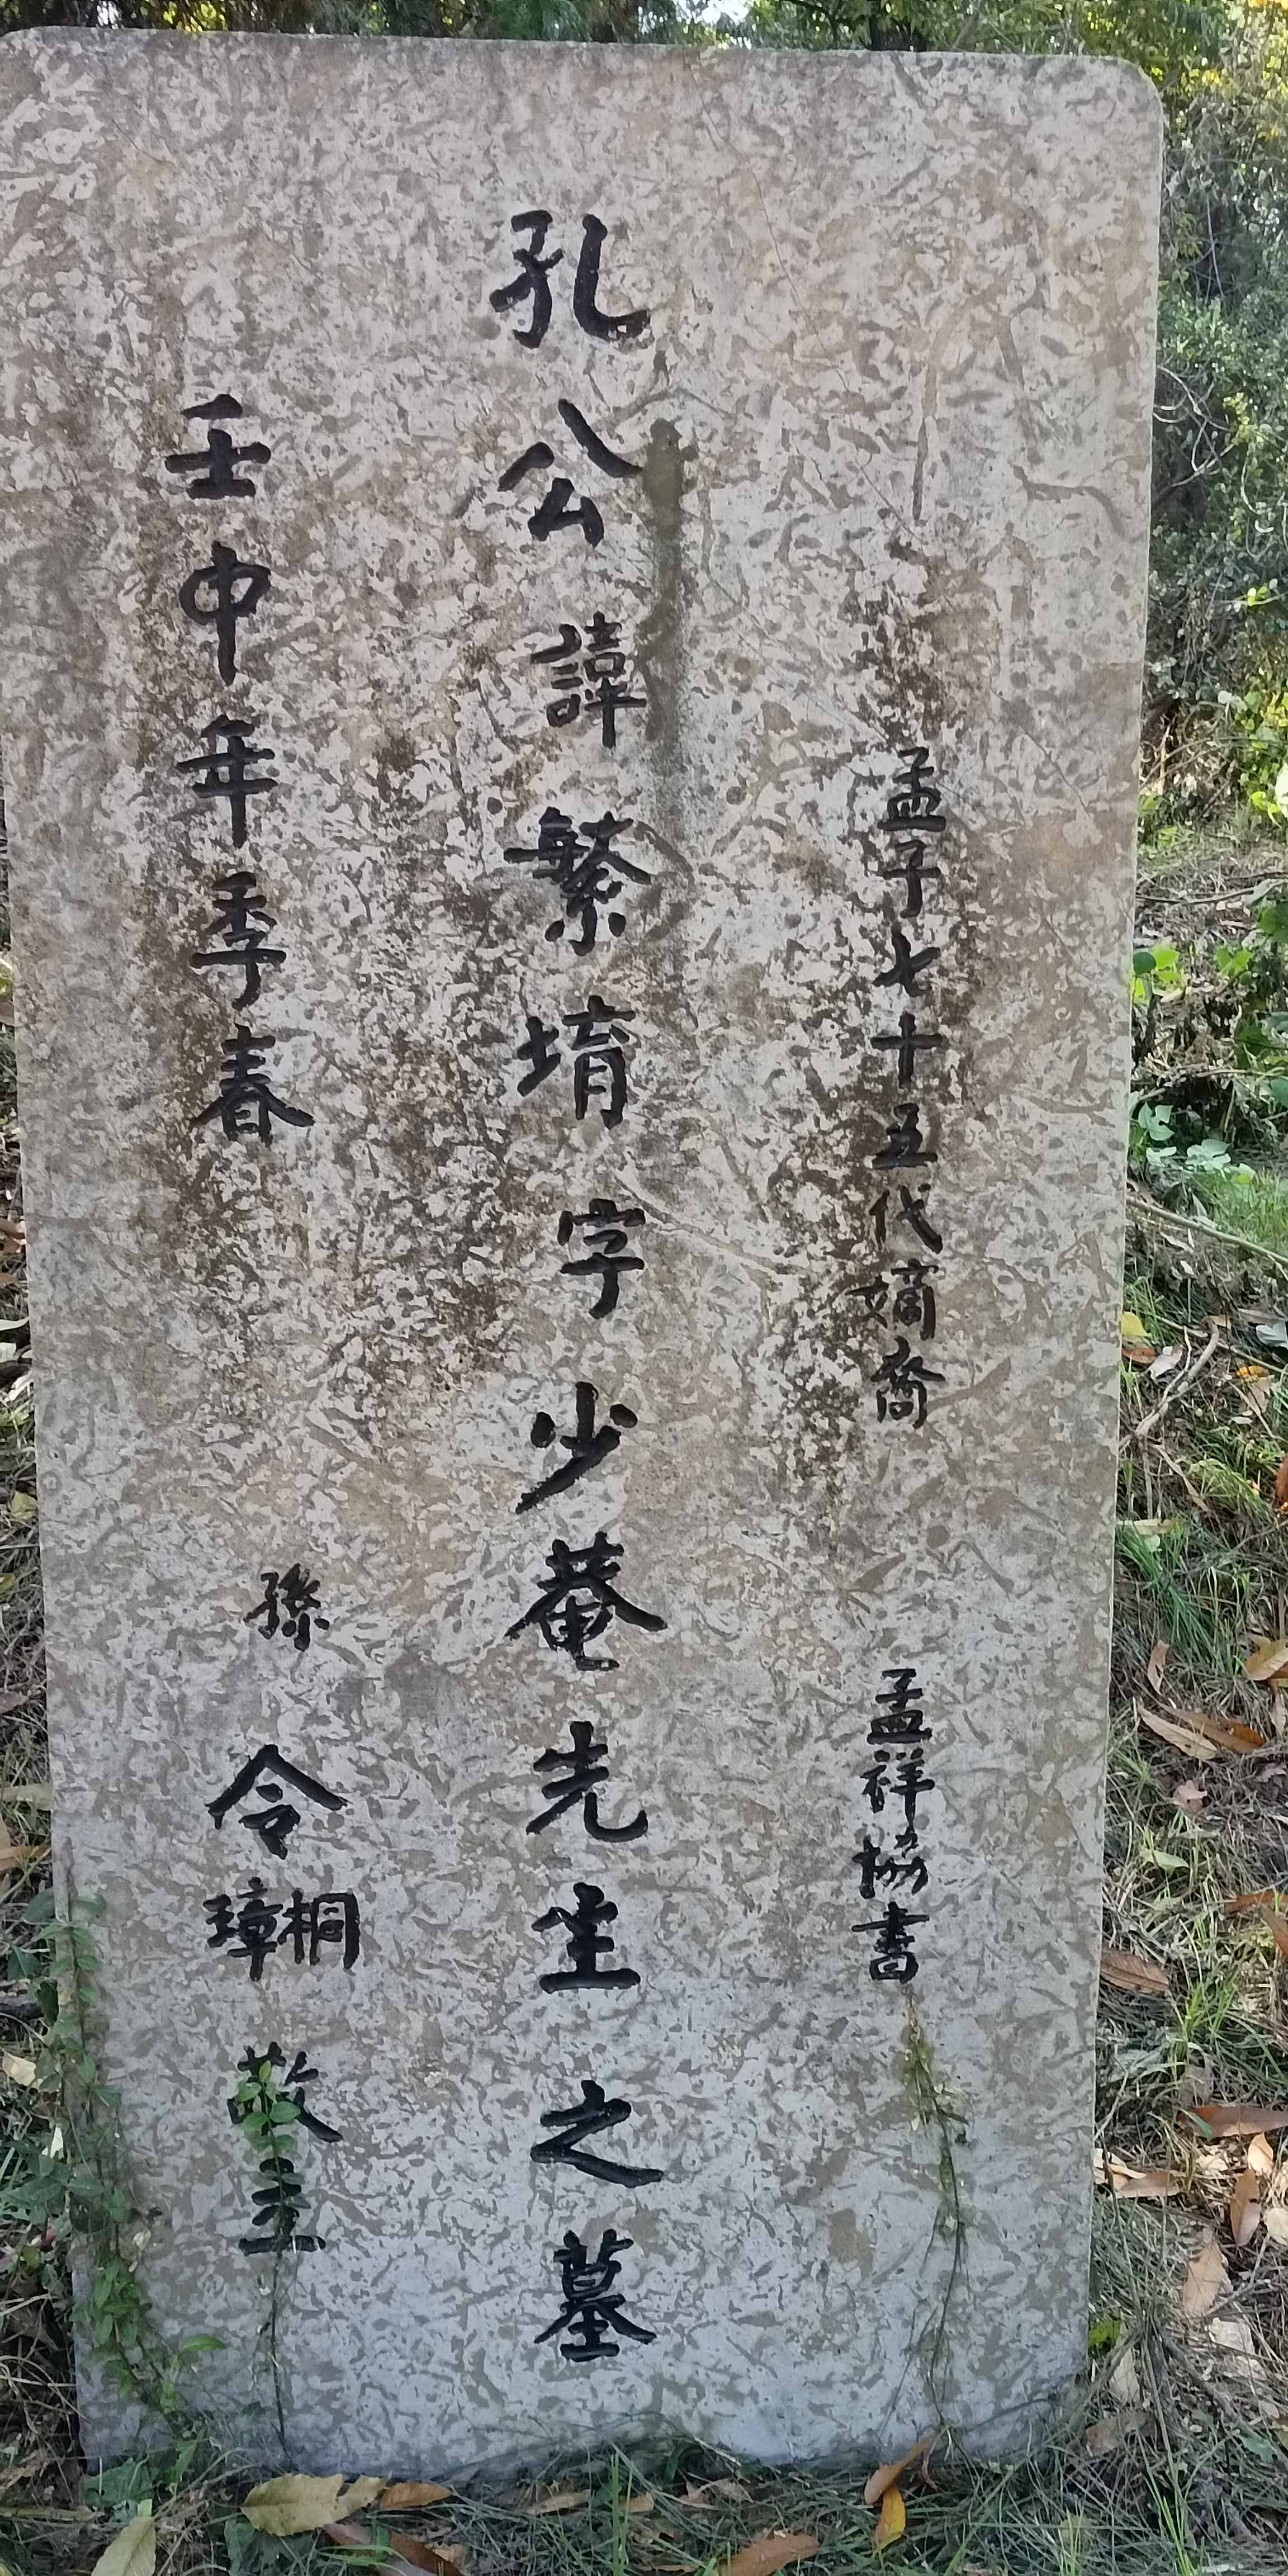 孟子七十五代嫡裔 孟祥協書
孔公諱繁堉字少菴先生之墓
壬申年季春
孫 令桐璋 敬立